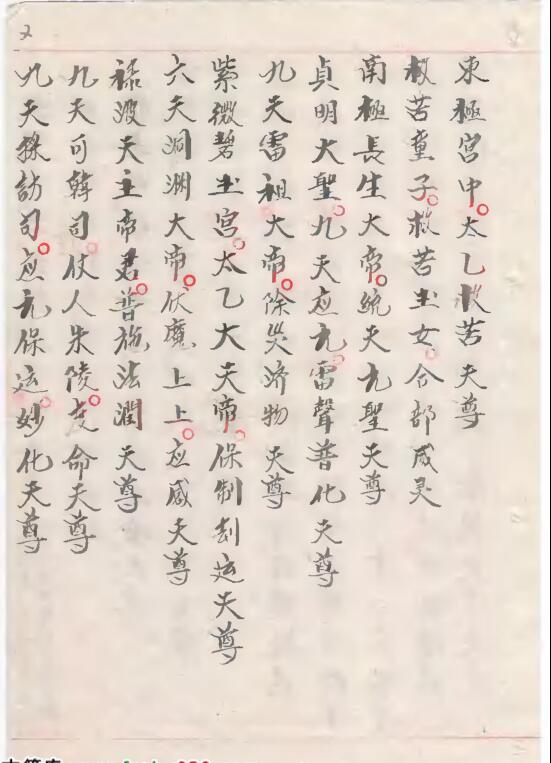 東極宮中太乙救苦天尊
救苦童子救苦玉女合部咸灵
南極長生大帝統天九聖天尊
貞明大聖九天應元雷聲普化天尊
九天雷祖大帝除災济物天尊
紫微碧玉宮太乙大天帝保制刧运天尊
六天洞渊大帝伏魔上上应感天尊
祿波天主帝君普施法潤天尊
九天可韓司仗人朱陵度命天尊
九天採訪司应元保运妙化天尊